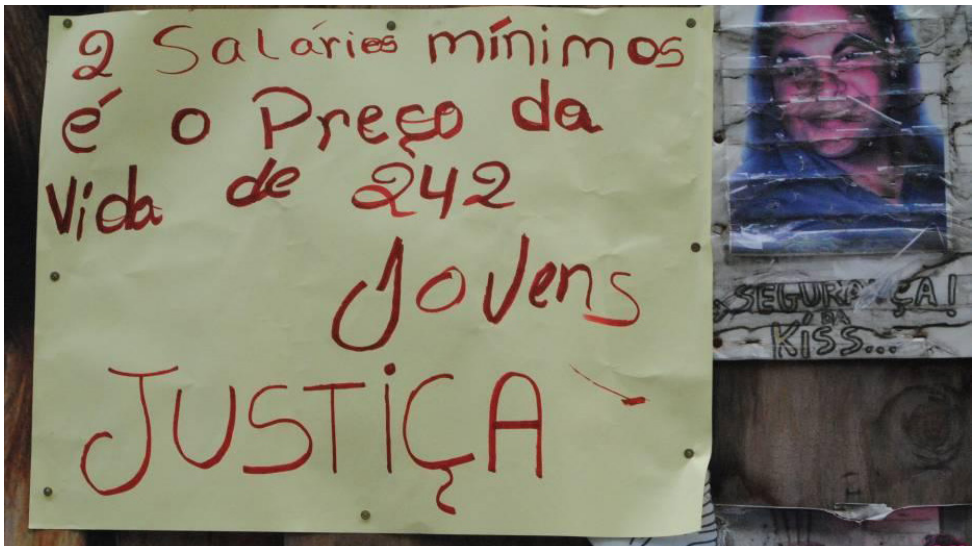 2 Salários mínimos
é o Preço da
Vida de 242
Jovens
JUSTIÇA
SEGURANÇA!
DA
KISS...